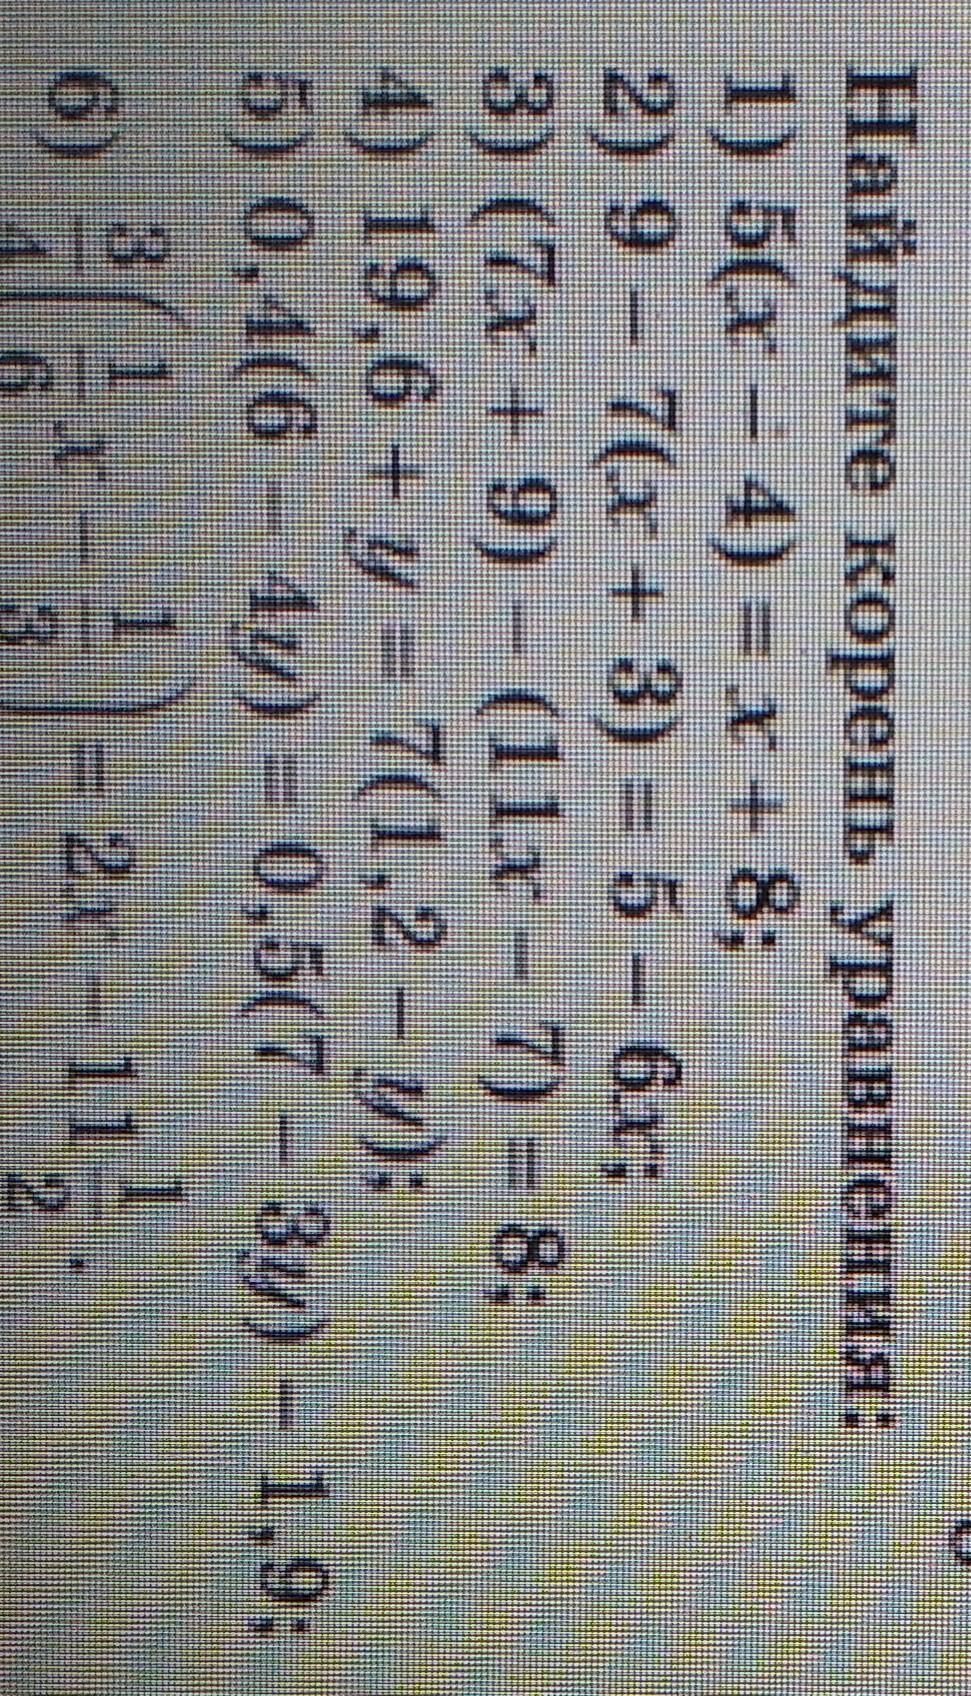 Найдите корень уравнения:
1) 5(x − 4) = x + 8;
2) 9 − 7(x + 3) = 5 − 6x;
3) (7x + 9) − (11x − 7) = 8;
4) 19,6 + y = 7(1,2 − y);
5) 0,4(6 − 4y) = 0,5(7 − 3y) − 1,9;
6) 3/4(1/6x − 1/3) = 2x − 11 1/2.